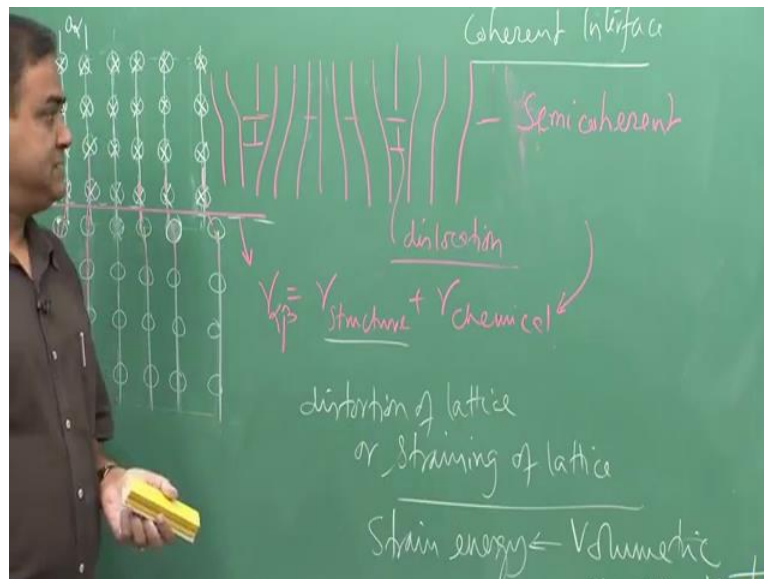 Coherent Interface
- Semicoherent
dislocation
γαβ = γstructure + γchemical
distortion of lattice
or straining of lattice
Strain energy ← Volumetric